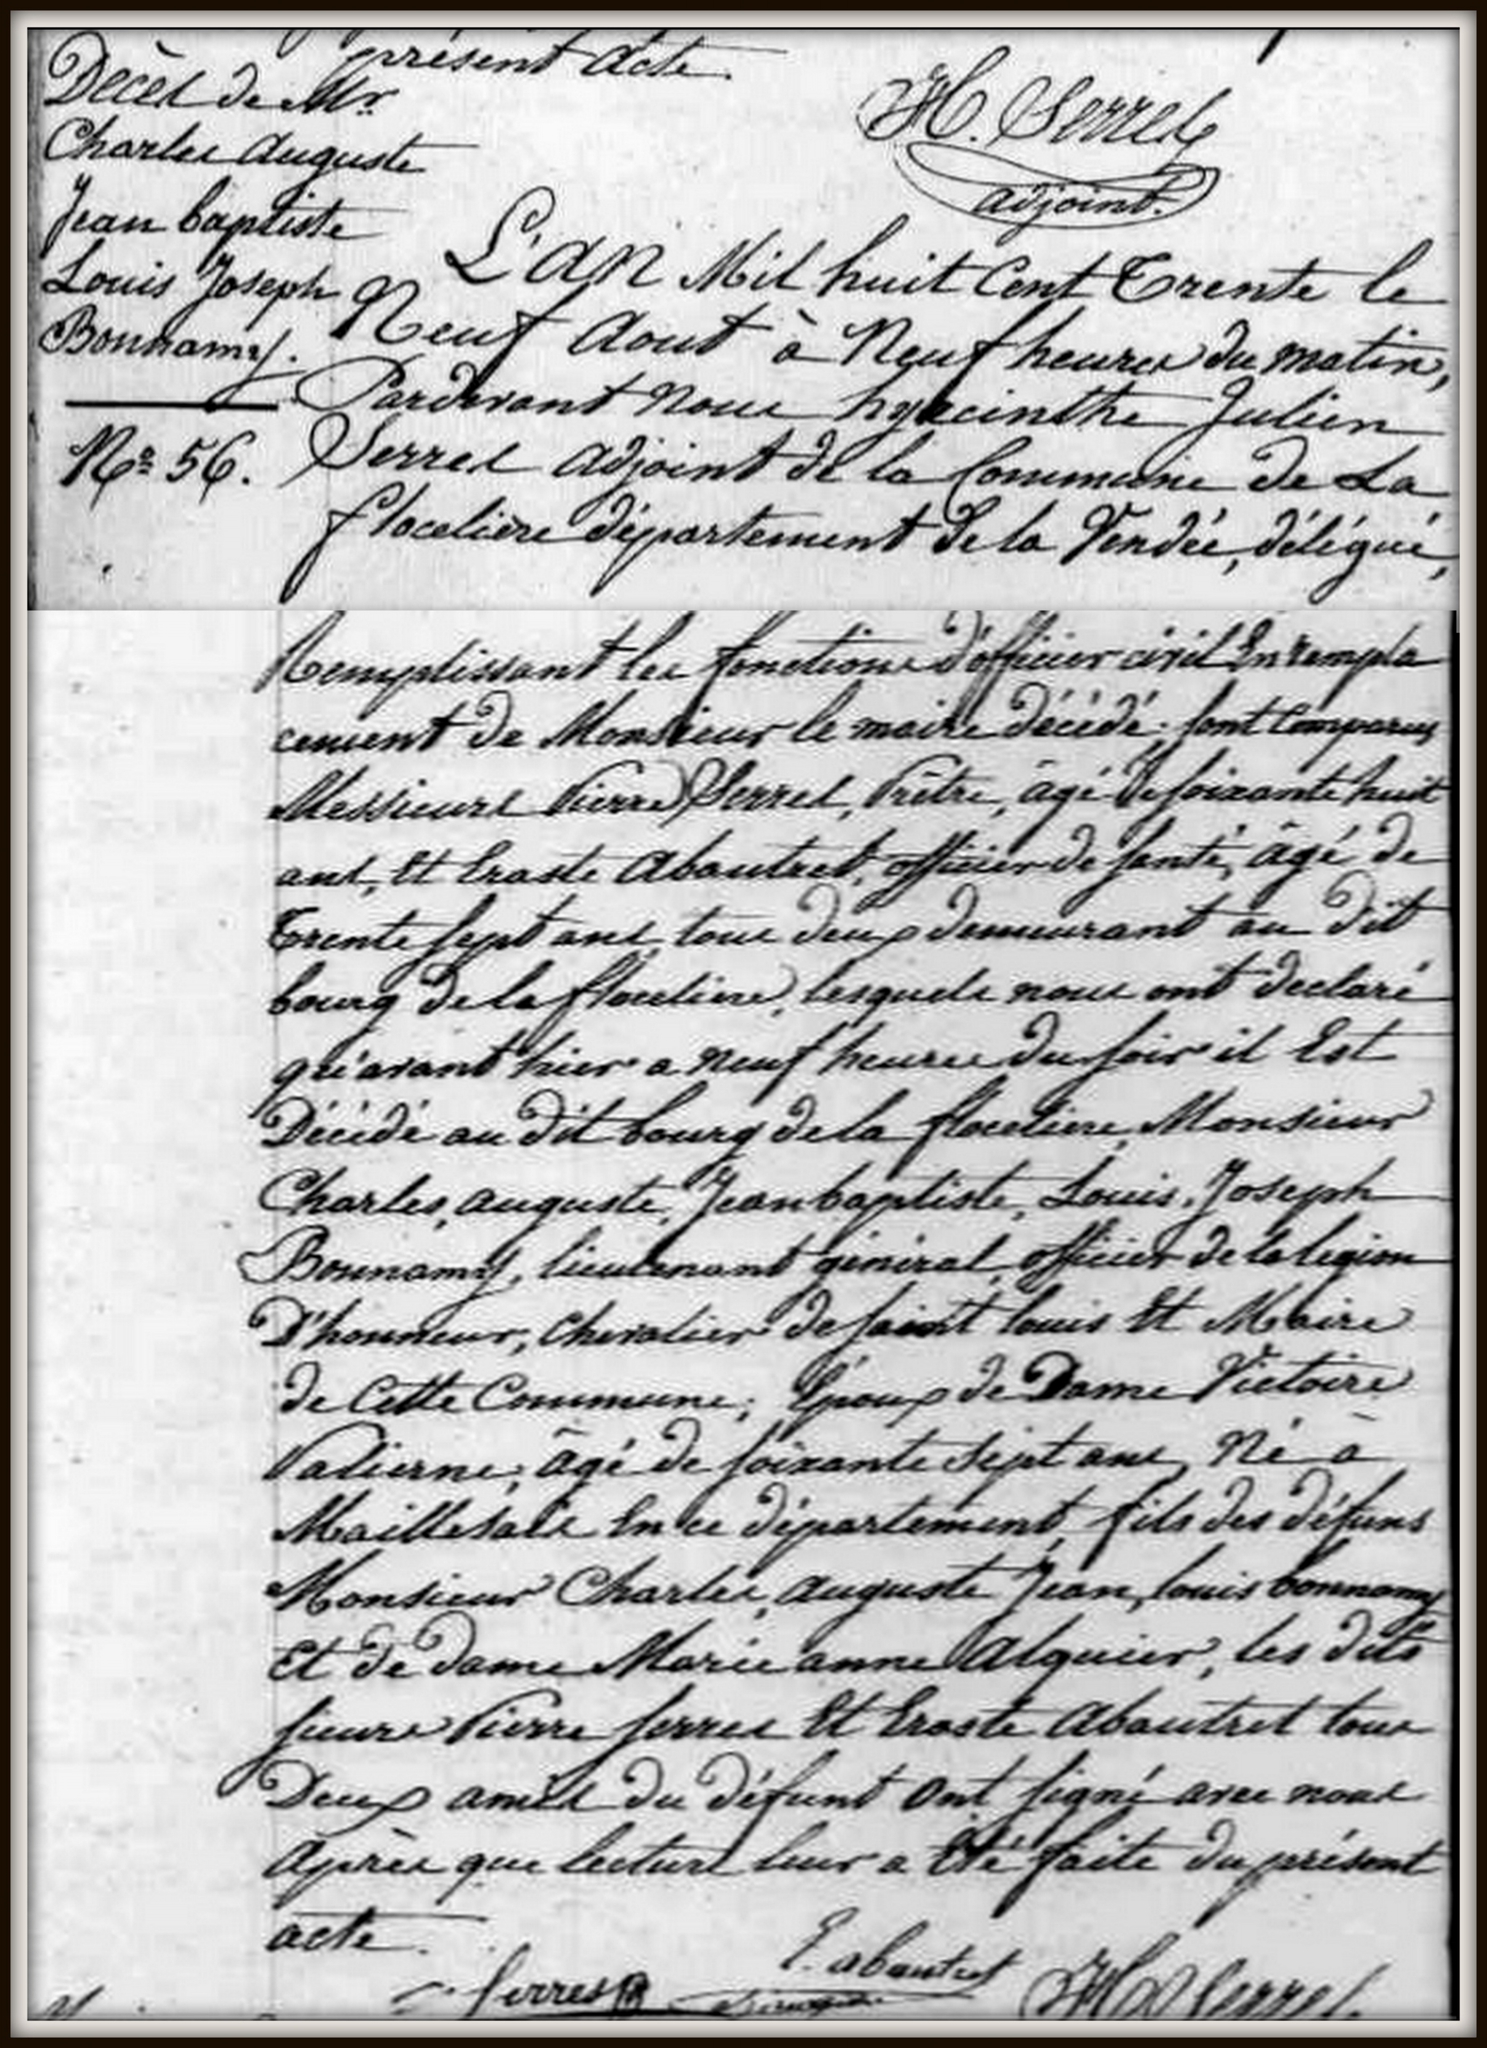 présent acte.
H. Serres
adjoint.
Décès de Mr.
Charles auguste
Jean baptiste
Louis Joseph
Bonnamy.
No 56.
L'an Mil huit Cent Trente le
Neuf Aout à Neuf heures du matin,
Pardevant nous hyacinthe Julien
Serres adjoint de la Commune de La
flocelière département de la Vendée, délégué,
Remplissant les fonctions d'officier civil En rempla
cement de Monsieur le maire décédé. sont Comparus
Messieurs Pierre Serres, Prêtre, âgé de soixante huit
ans, Et Eraste Abautret, officier de santé, âgé de
Trente sept ans, tous deux demeurant au dit
bourg de la flocelière, lesquels nous ont declaré
qu'avant hier a neuf heures du soir il Est
Décédé au dit bourg de la flocelière, Monsieur
Charles, auguste, Jean baptiste, Louis, Joseph
Bonnamy, lieutenant général, officier de la légion
D'honneur, Chevalier de saint louis Et Maire
de Cette Commune, Epoux de Dame Victoire
Valierne, âgé de soixante sept ans, Né à
Maillesais En ce département, fils des défuns
Monsieur Charles, auguste Jean, louis bonnamy
Et de dame Marie anne Alquier, les dits
sieurs Pierre serres Et Eraste Abautret tous
Deux amis du défunt ont signé avec nous
Après que lecture leur a Eté faite du présent
acte.
Serres
E. abautret
H Serres.